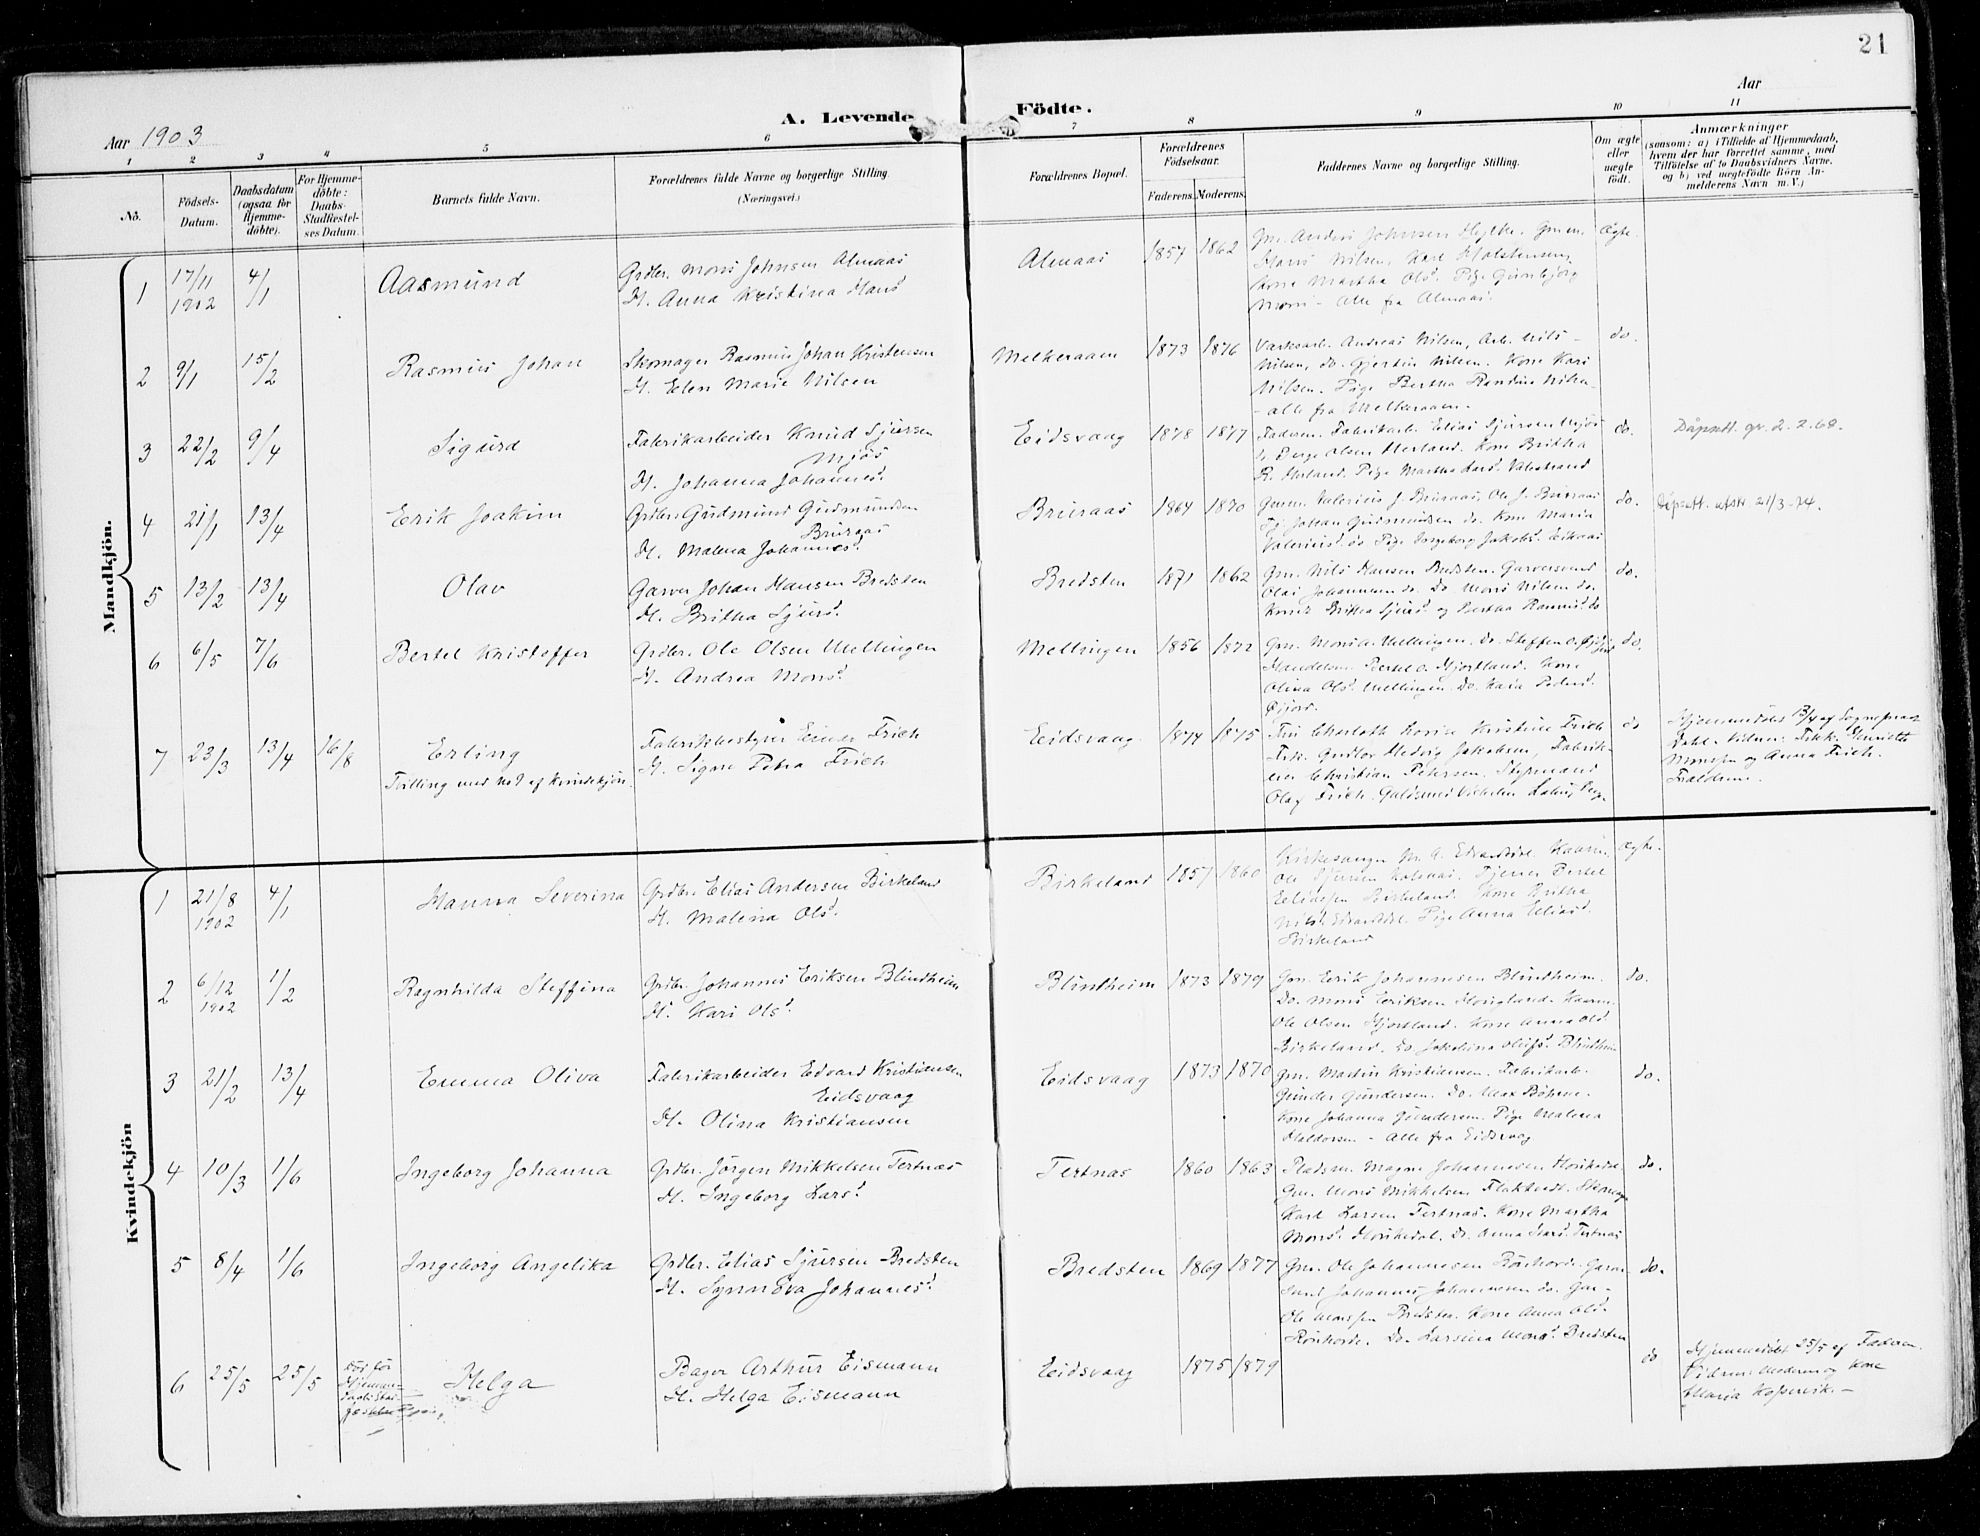 21
Aar 1903
A. Levende Födte.
Aar
1 2 3 4 5 6 7 8 9 10 11
Nö.
Födsels-Datum.
Daabsdatum (ogsaa for Hjemme-döbte).
For Hjemme-döbte: Daabs-Stadfæstel-ses Datum.
Barnets fulde Navn.
Forældrenes fulde Navne og borgerlige Stilling. (Næringsvei.)
Forældrenes Bopæl.
Forældrenes Födselsaar.
Faderens. Moderens.
Faddernes Navne og borgerlige Stilling.
Om ægte eller uægte födt.
Anmærkninger
(saasom: a) i Tilfælde af Hjemmedaab, hvem der har forrettet samme, med Tilföielse af to Daabsvidners Navne, og b) ved uægtefödte Börn An-melderens Navn m. V.)
Mandkjön.
1 17/11 1902 4/1 Aasmund
Grdbr. Mons Johnsen Almaas
H. Anna Kristina Hans
Almaas 1857 1862
Gm. Anders Johnsen Hylke. Gm. m.
Hans Nilsen, Karl Holstensen,
Kone Martha Ols. Pige Gunbjörg
Mons - Alle fra Almaas.
Ægte.
2 9/1 15/2 Rasmus Johan
Skomager Rasmus Johan Kristensen
H. Elen Marie Nilsen
Melkeraaen 1873 1876
Andreas Nilsen, Arb. Nils
Nilsen, do. Gjertin Nilsen. Kone Kari
Nilsen. Pige Bertha Nilsen
- alle fra Melkeraaen.
do.
3 22/2 9/4 Sigurd
Fabrikarbeider Knud Sjursen
Mjös
H. Johanna Johannes.
Eidsvaag 1878 1877
Faderen. Fabrikarb. Elias Sjursen Mjös
Olsen Herland. Kone Britha
R. Herland. Pige Martha Lars. Valestrand
do.
Dåpsatt. gr. 2.2.68.
4 21/1 13/4 Erik Joakim
Grdbr. Gudmund Gudmundsen
Bruraas
H. Malena Johannes.
Bruraas 1864 1870
J. Bruraas, Ole J. Bruraas
Johan Gudmundsen do. Kone Maria
do Pige Ingeborg Jakobs. Eikaas
do.
Dåpsatt. utstr. 21/3-74.
5 13/2 13/4 Olav
Garver Johan Hansen Bredsten
H. Britha Sjurs.
Bredsten 1871 1862
Gm. Nils Hansen Bredsten. Garversvend
Olai Johannesen do. Do Mons Nilsen do.
Britha Sjurs. og Bertha Rasmus. do
do.
6 6/5 7/6 Bertel Kristoffer
Grdbr. Ole Olsen Mellingen
H. Andrea Mons.
Mellingen 1856 1872
Gm. Mons A. Mellingen. Do. Steffen O.
Handelsm. Bertel O. Hjortland. Kone
Olina Ols. Mellingen. Do. Kaia Peders.
do.
7 23/3 13/4 16/8 Erling
Tvilling med No 7 af kvindekjön.
Fabrikbestyrer Einar Frich
H. Signe Petra Frich
Eidsvaag 1874 1875
Fru Charloth Lovise Kristine Frich
Frk. Gudlov Hedvig Jakobsen, Fabrik-
eier Christian Petersen. Styrmand
Olaf Frich. Guldsmed Vilhelm
do
Hjemmedöbt 13/4 af Sogneprest
Dahl. Vidner: Frk. Henriette
Monsen og Anna Frich.
Kvindekjön
1 21/8 1902 4/1 Hanna Severina
Grdbr. Elias Andersen Birkeland
H. Malena Ols.
Birkeland 1857 1860
Kirkesanger M. A. Kaarm.
Ole Sjursen Bertel
Eliesen Birkeland. Kone Britha
Nils. Pige Anna Elias.
Birkeland
Ægte.
2 6/12 1902 1/2 Ragnhilda Steffina
Grdbr. Johannes Eriksen Blindheim
H. Kari Ols.
Blindheim 1873 1879
Gm. Erik Johannesen Blindheim.
Do. Mons Eriksen Hougland. Kaarm.
Ole Olsen Hjortland. Kone Anna Ols.
Birkeland. Do. Jakobina Olufs. Blindheim
do.
3 21/2 13/4 Emma Oliva
Fabrikarbeider Edvard Kristiansen
Eidsvaag
H. Olina Kristiansen
Eidsvaag 1873 1870
Gm. Martin Kristiansen. Fabrikarb.
Gunder Gundersen. Do. Max Böhme.
Kone Johanna Gundersen. Pige Malena
Haldorsen - Alle fra Eidsvag
do.
4 10/3 1/6 Ingeborg Johanna
Grdbr. Jörgen Mikkelsen Tertnæs
H. Ingeborg Lars.
Tertnæs 1860 1863
Pladsm. Magne Johannesen
Gm. Mons Mikkelsen Flaktveit. Skomager
Karl Larsen Tertnæs. Kone Martha
Mons. Do. Anna Lars. Tertnæs
do.
5 8/4 1/6 Ingeborg Angelika
Grdbr. Elias Sjursen Bredsten
H. Synnöva Johannes.
Bredsten 1869 1877
Gm. Ole Johannesen Rönhovde. Garver-
svend Johannes Johannesen do. Gar-
Ole Monsen Bredsten. Kone Anna Ols.
Rönhovde. Do. Larsina Mons. Bredsten
do.
6 25/5 25/5
Helga
Bager Arthur Eismann
H. Helga Eismann
Eidsvaag 1875 1879
do
Hjemmedöbt 25/5 af Faderen.
Vidner: Moderen og Kone
Maria Kopervik. -